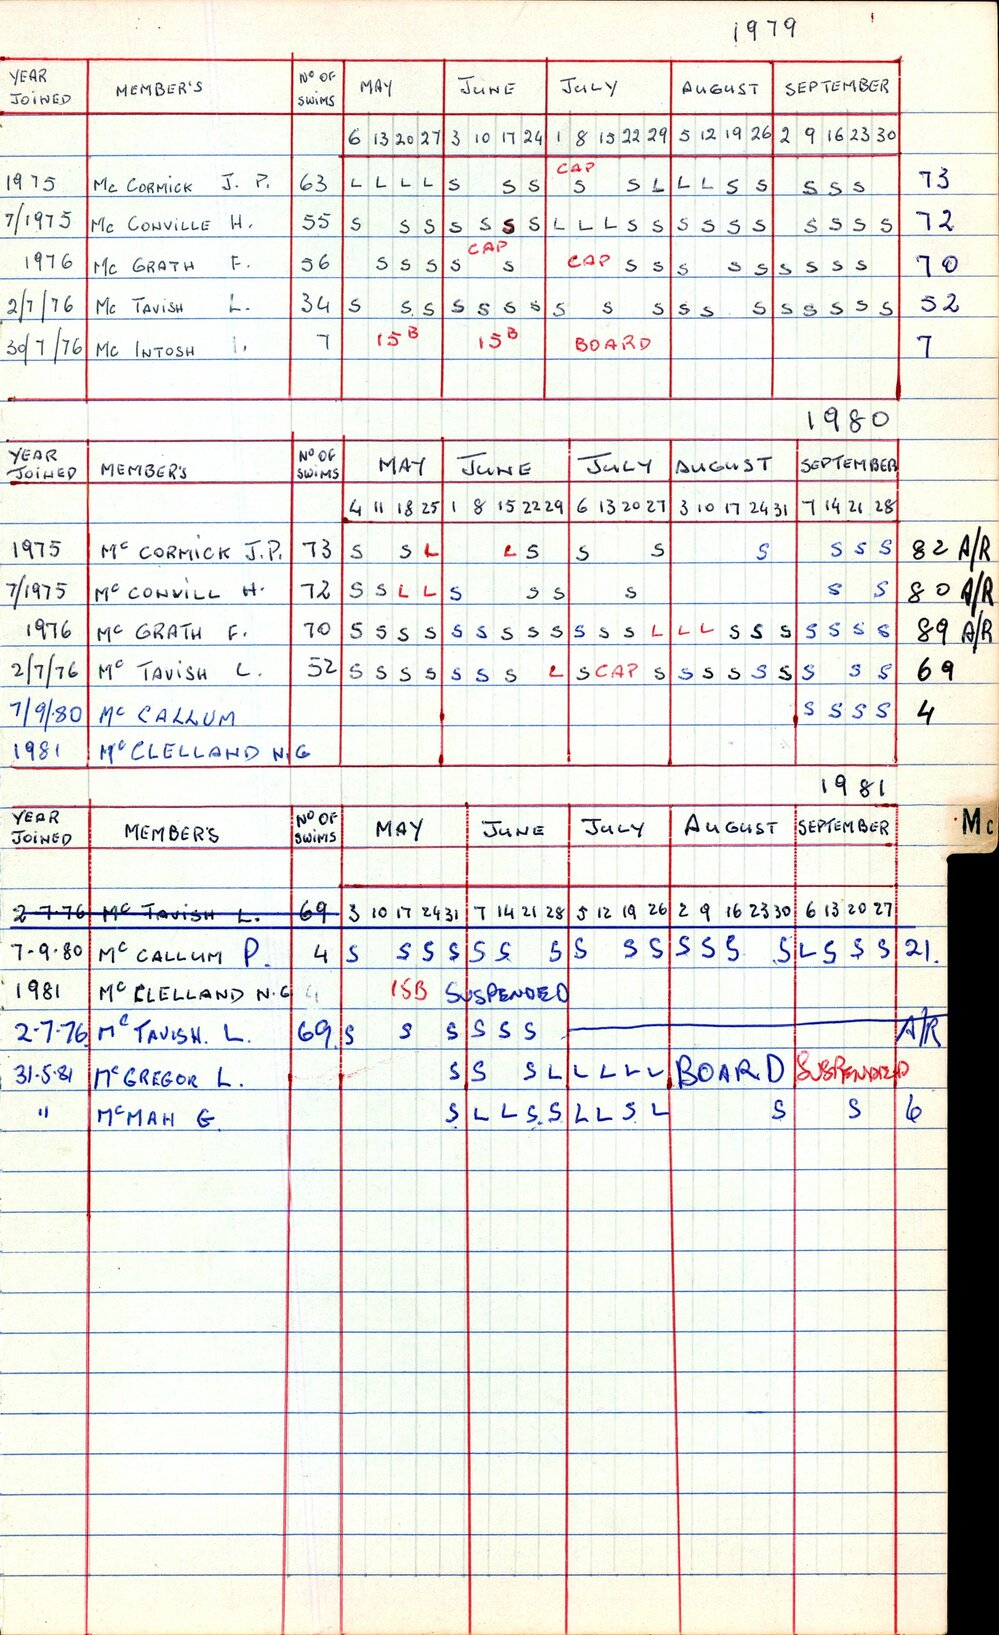 1979
YEAR JOINED MEMBER'S Nº OF SWIMS MAY JUNE JULY AUGUST SEPTEMBER
6 13 20 27 3 10 17 24 1 8 15 22 29 5 12 19 26 2 9 16 23 30
CAP
1975 Mc CORMICK J. P. 63 L L L L S S S S S L L L S S S S S 73
7/1975 Mc CONVILLE H. 55 S S S S S S S L L L S S S S S S S S S S 72
CAP
1976 Mc GRATH F. 56 S S S S S CAP S S S S S S S S S 70
2/7/76 Mc TAVISH L. 34 S S S S S S S S S S S S S S S S S S 52
30/7/76 Mc INTOSH I. 7 15B 15B BOARD 7
1980
YEAR JOINED MEMBER'S Nº OF SWIMS MAY JUNE JULY AUGUST SEPTEMBER
4 11 18 25 1 8 15 22 29 6 13 20 27 3 10 17 24 31 7 14 21 28
1975 Mc CORMICK J.P. 73 S S L L S S S S S S S 82 A/R
7/1975 Mc CONVILL H. 72 S S L L S S S S S S 80 A/R
1976 Mc GRATH F. 70 S S S S S S S S S S S S L L L S S S S S S S 89 A/R
2/7/76 Mc TAVISH L. 52 S S S S S S S L S CAP S S S S S S S S S 69
7/9/80 Mc CALLUM S S S S 4
1981 Mc CLELLAND N.G
1981
YEAR JOINED MEMBER'S Nº OF SWIMS MAY JUNE JULY AUGUST SEPTEMBER
Mc
2-7-76 Mc TAVISH L. 69 3 10 17 24 31 7 14 21 28 5 12 19 26 2 9 16 23 30 6 13 20 27
7-9-80 Mc CALLUM P. 4 S S S S S S S S S S S S S S L S S S 21.
1981 Mc CLELLAND N.G 4 15B SUSPENDED
2-7-76 Mc TAVISH. L. 69. S S S S S S A/R
31-5-81 McGREGOR L. S S S L L L L L BOARD SUSPENDED
" McMAH G. S L L S S L L S L S S 6